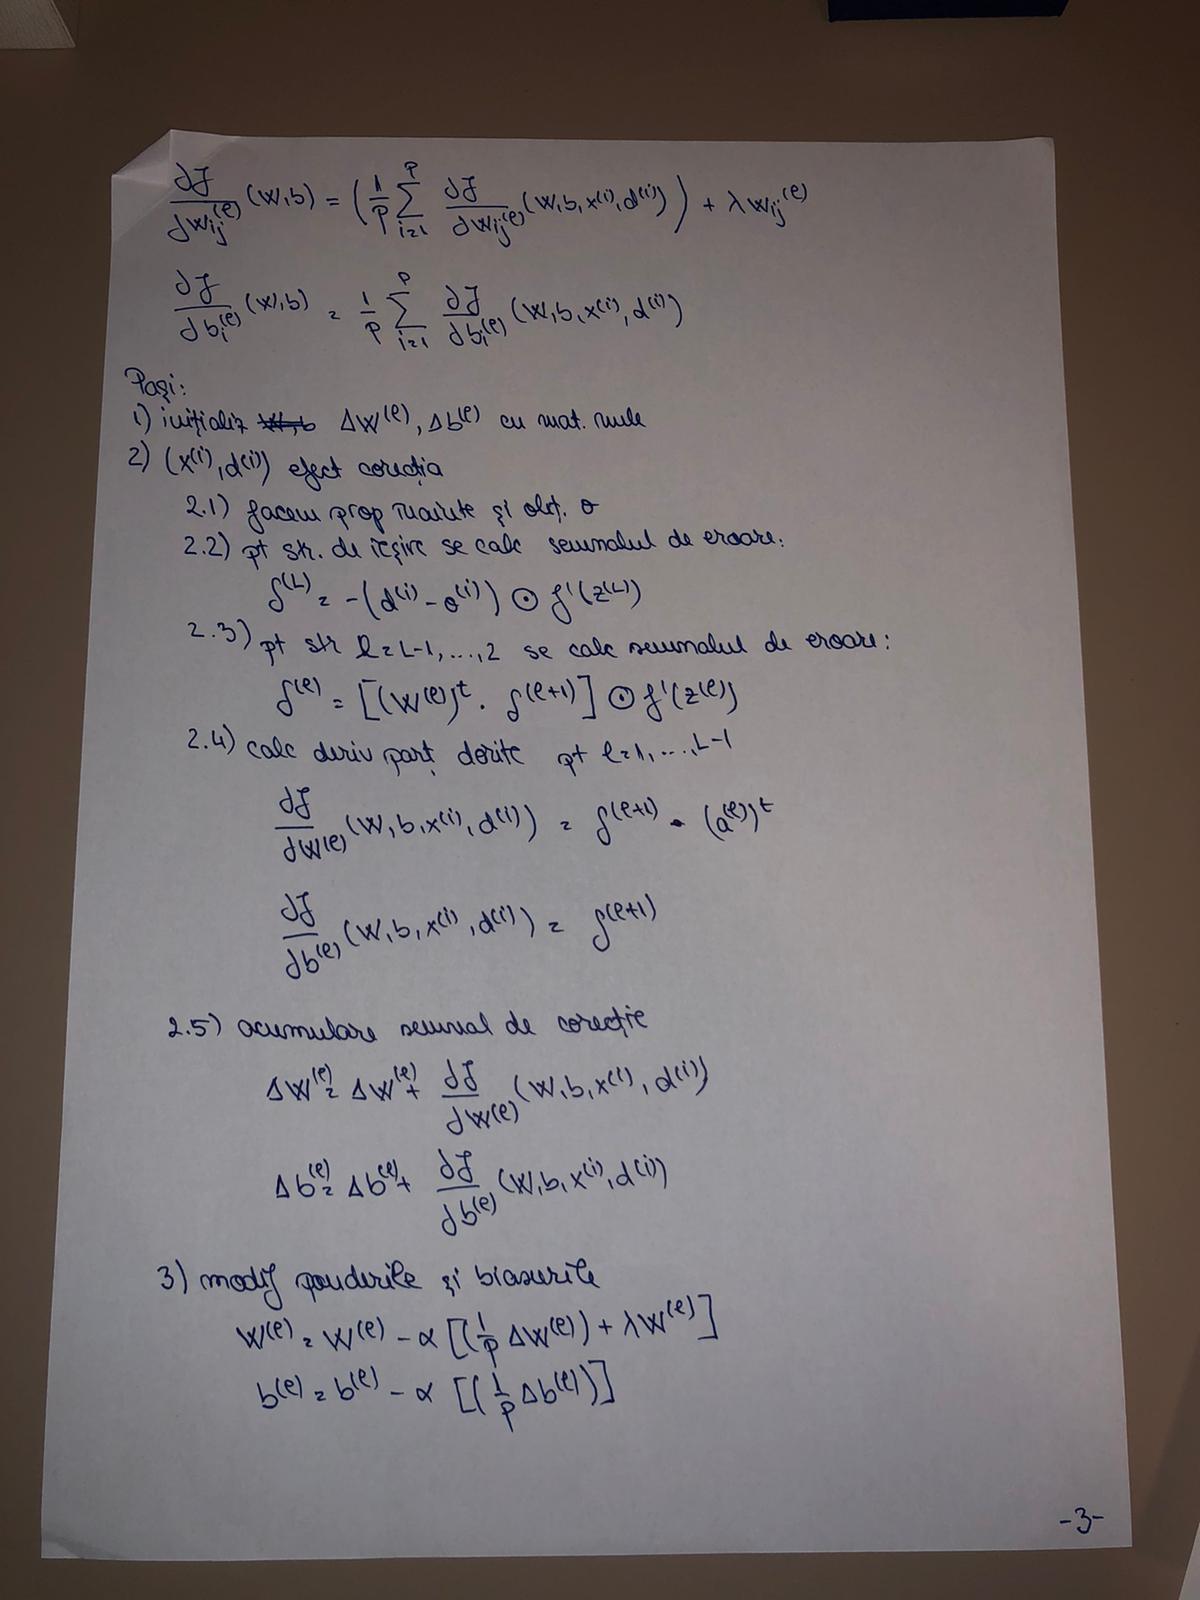 ∂J/∂Wij^(l) (W,b) = (1/P ∑_{i=1}^{P} ∂J/∂Wij^(l) (W,b,x^(i),d^(i))) + λWij^(l)
∂J/∂bi^(l) (W,b) = 1/P ∑_{i=1}^{P} ∂J/∂bi^(l) (W,b,x^(i),d^(i))
Pași:
1) inițializ W,b ΔW^(l), Δb^(l) cu mat. nule
2) (x^(i),d^(i)) efect corecția
2.1) facem prop înainte și obț. o
2.2) pt str. de ieșire se calc semnalul de eroare:
δ^(L) = -(d^(i) - o^(i)) ⊙ f'(z^(L))
2.3) pt str l=L-1,...,2 se calc semnalul de eroare:
δ^(l) = [(W^(l))^t · δ^(l+1)] ⊙ f'(z^(l))
2.4) calc deriv parț dorite pt l=1,...,L-1
∂J/∂W^(l) (W,b,x^(i),d^(i)) = δ^(l+1) · (a^(l))^t
∂J/∂b^(l) (W,b,x^(i),d^(i)) = δ^(l+1)
2.5) acumulare semnal de corecție
ΔW^(l) = ΔW^(l) + ∂J/∂W^(l) (W,b,x^(i),d^(i))
Δb^(l) = Δb^(l) + ∂J/∂b^(l) (W,b,x^(i),d^(i))
3) modif ponderile și biasurile
W^(l) = W^(l) - α [(1/P ΔW^(l)) + λW^(l)]
b^(l) = b^(l) - α [(1/P Δb^(l))]
-3-